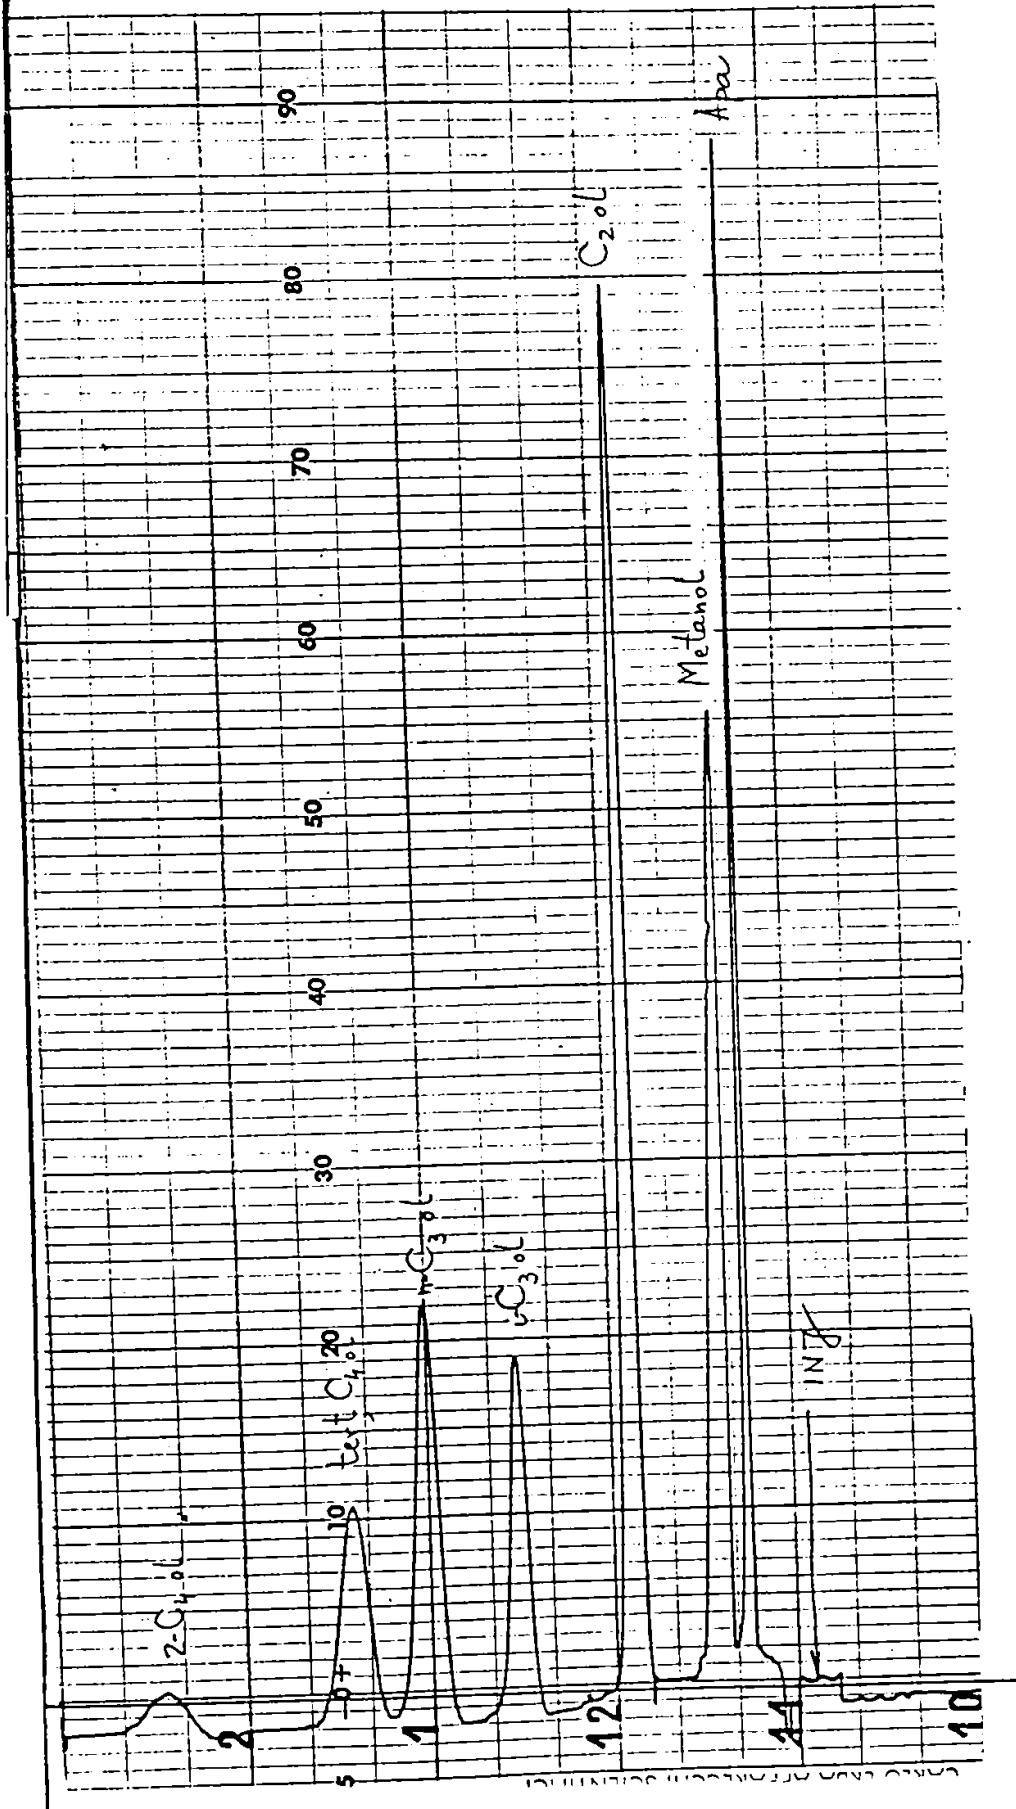 90
80
70
60
50
40
30
20
10
0+
5
Apa
C₂ol
Metanol
n-C₃ol
i-C₃ol
tert C₄ol
2-C₄ol
INJ
2
1
12
11
10